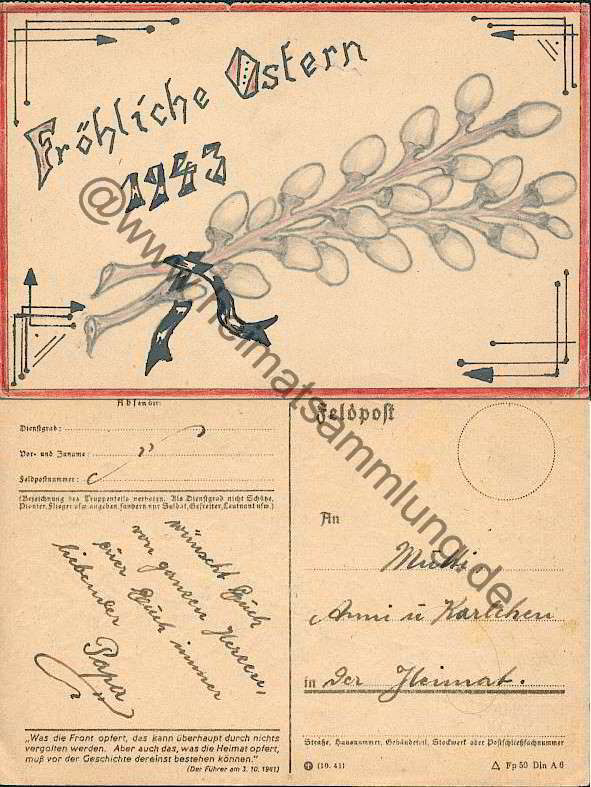 Fröhliche Ostern
1943
@www.heimatsammlung.de
Absender:
Dienstgrad:
Vor- und Zuname:
Feldpostnummer:
(Bezeichnung des Truppenteils verboten. Als Dienstgrad nicht Schütze,
Pionier, Flieger usw. angeben, sondern nur Soldat, Gefreiter, Leutnant usw.)
wünscht Euch
von ganzen Herzen,
Euer Euch immer
liebender
Papa
"Was die Front opfert, das kann überhaupt durch nichts
vergolten werden. Aber auch das, was die Heimat opfert,
muß vor der Geschichte dereinst bestehen können."
(Der Führer am 3. 10. 1941)
Feldpost
An
Mutti,
Anni u Karlchen
in Der Heimat.
Straße, Hausnummer, Gebäudeteil, Stockwerk oder Postschließfachnummer
(10. 41)
Fp 50 Din A 6